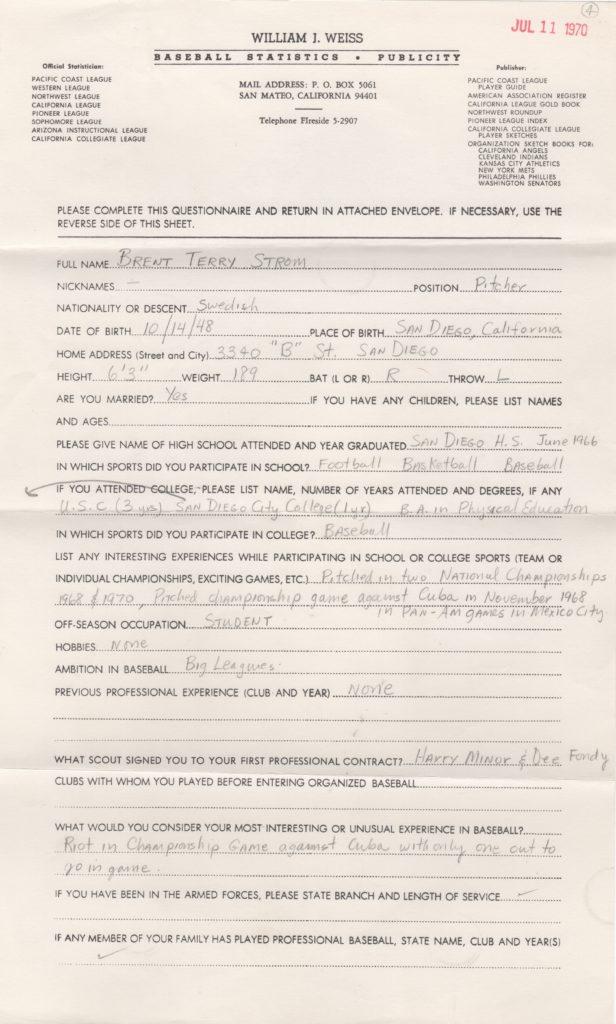 4
JUL 11 1970
WILLIAM J. WEISS
BASEBALL STATISTICS • PUBLICITY
MAIL ADDRESS: P. O. BOX 5061
SAN MATEO, CALIFORNIA 94401
Telephone FIreside 5-2907
Official Statistician:
PACIFIC COAST LEAGUE
WESTERN LEAGUE
NORTHWEST LEAGUE
CALIFORNIA LEAGUE
PIONEER LEAGUE
SOPHOMORE LEAGUE
ARIZONA INSTRUCTIONAL LEAGUE
CALIFORNIA COLLEGIATE LEAGUE
Publisher:
PACIFIC COAST LEAGUE
PLAYER GUIDE
AMERICAN ASSOCIATION REGISTER
CALIFORNIA LEAGUE GOLD BOOK
NORTHWEST ROUNDUP
PIONEER LEAGUE INDEX
CALIFORNIA COLLEGIATE LEAGUE
PLAYER SKETCHES
ORGANIZATION SKETCH BOOKS FOR:
CALIFORNIA ANGELS
CLEVELAND INDIANS
KANSAS CITY ATHLETICS
NEW YORK METS
PHILADELPHIA PHILLIES
WASHINGTON SENATORS
PLEASE COMPLETE THIS QUESTIONNAIRE AND RETURN IN ATTACHED ENVELOPE. IF NECESSARY, USE THE
REVERSE SIDE OF THIS SHEET.
FULL NAME BRENT TERRY STROM
NICKNAMES — POSITION Pitcher
NATIONALITY OR DESCENT Swedish
DATE OF BIRTH 10/14/48 PLACE OF BIRTH SAN DIEGO, California
HOME ADDRESS (Street and City) 3340 "B" St. SAN DIEGO
HEIGHT 6'3" WEIGHT 189 BAT (L OR R) R THROW L
ARE YOU MARRIED? Yes IF YOU HAVE ANY CHILDREN, PLEASE LIST NAMES
AND AGES
PLEASE GIVE NAME OF HIGH SCHOOL ATTENDED AND YEAR GRADUATED SAN DIEGO H.S. June 1966
IN WHICH SPORTS DID YOU PARTICIPATE IN SCHOOL? Football Basketball Baseball
IF YOU ATTENDED COLLEGE, PLEASE LIST NAME, NUMBER OF YEARS ATTENDED AND DEGREES, IF ANY
U.S.C (3 yrs) SAN DIEGO City College (1 yr) B.A. in Physical Education
IN WHICH SPORTS DID YOU PARTICIPATE IN COLLEGE? Baseball
LIST ANY INTERESTING EXPERIENCES WHILE PARTICIPATING IN SCHOOL OR COLLEGE SPORTS (TEAM OR
INDIVIDUAL CHAMPIONSHIPS, EXCITING GAMES, ETC.) Pitched in two National Championships
1968 & 1970, Pitched championship game against Cuba in November 1968
in PAN-Am games in Mexico City
OFF-SEASON OCCUPATION STUDENT
HOBBIES None
AMBITION IN BASEBALL Big Leagues.
PREVIOUS PROFESSIONAL EXPERIENCE (CLUB AND YEAR) None
WHAT SCOUT SIGNED YOU TO YOUR FIRST PROFESSIONAL CONTRACT? Harry Minor & Dee Fondy
CLUBS WITH WHOM YOU PLAYED BEFORE ENTERING ORGANIZED BASEBALL
WHAT WOULD YOU CONSIDER YOUR MOST INTERESTING OR UNUSUAL EXPERIENCE IN BASEBALL?
Riot in Championship Game against Cuba with only one out to
go in game.
IF YOU HAVE BEEN IN THE ARMED FORCES, PLEASE STATE BRANCH AND LENGTH OF SERVICE —
IF ANY MEMBER OF YOUR FAMILY HAS PLAYED PROFESSIONAL BASEBALL, STATE NAME, CLUB AND YEAR(S)